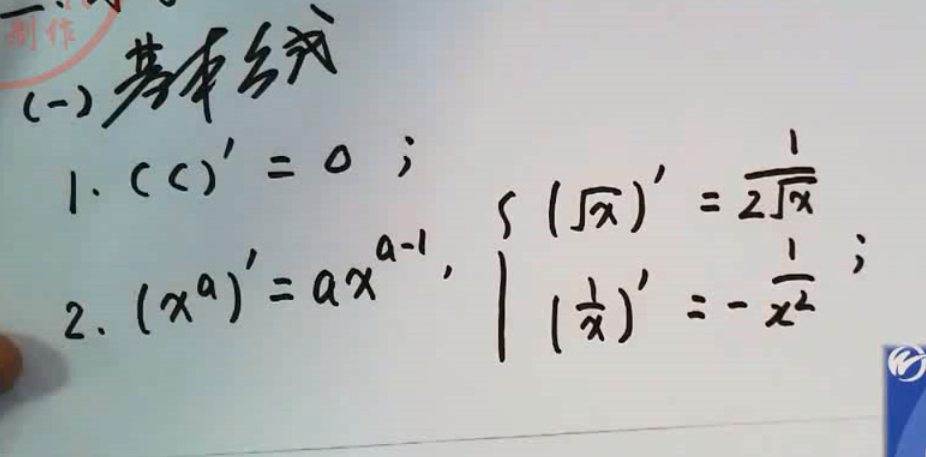 制作
(一) 基本公式
1. (C)' = 0 ;
2. (x^a)' = ax^{a-1}, { (√x)' = 1/(2√x)
(1/x)' = -1/x² ;